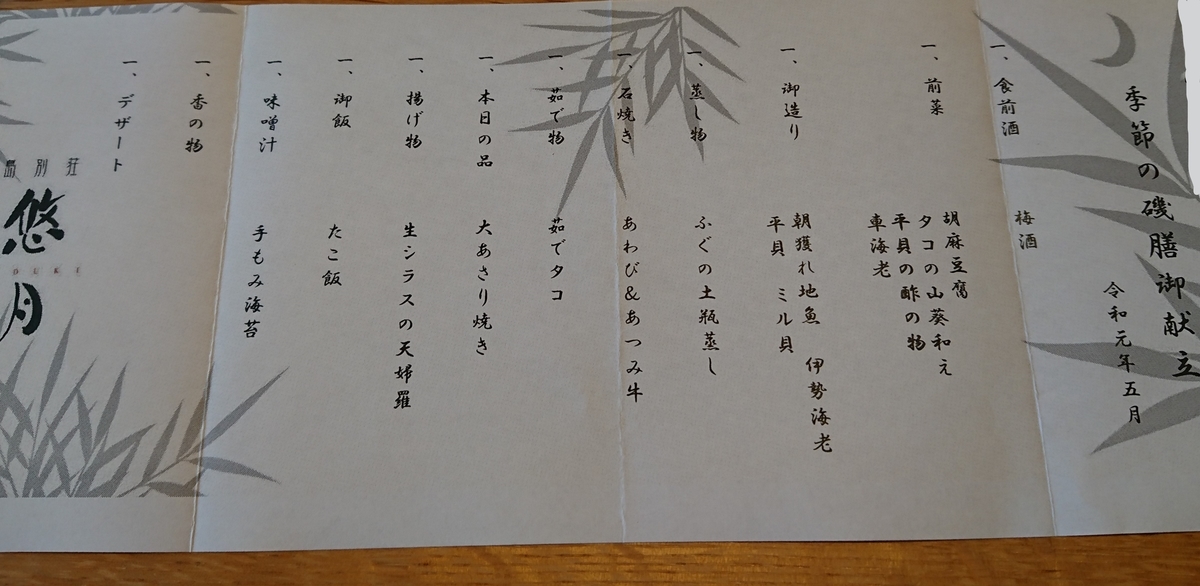 季節の磯膳御献立
令和元年五月
一、食前酒 梅酒
一、前菜 胡麻豆腐
タコの山葵和え
平貝の酢の物
車海老
一、御造り 朝獲れ地魚 伊勢海老
平貝 ミル貝
一、蒸し物 ふぐの土瓶蒸し
一、石焼き あわび&あつみ牛
一、茹で物 茹でタコ
一、本日の品 大あさり焼き
一、揚げ物 生シラスの天婦羅
一、御飯 たこ飯
一、味噌汁 手もみ海苔
一、香の物
一、デザート
別荘
悠月